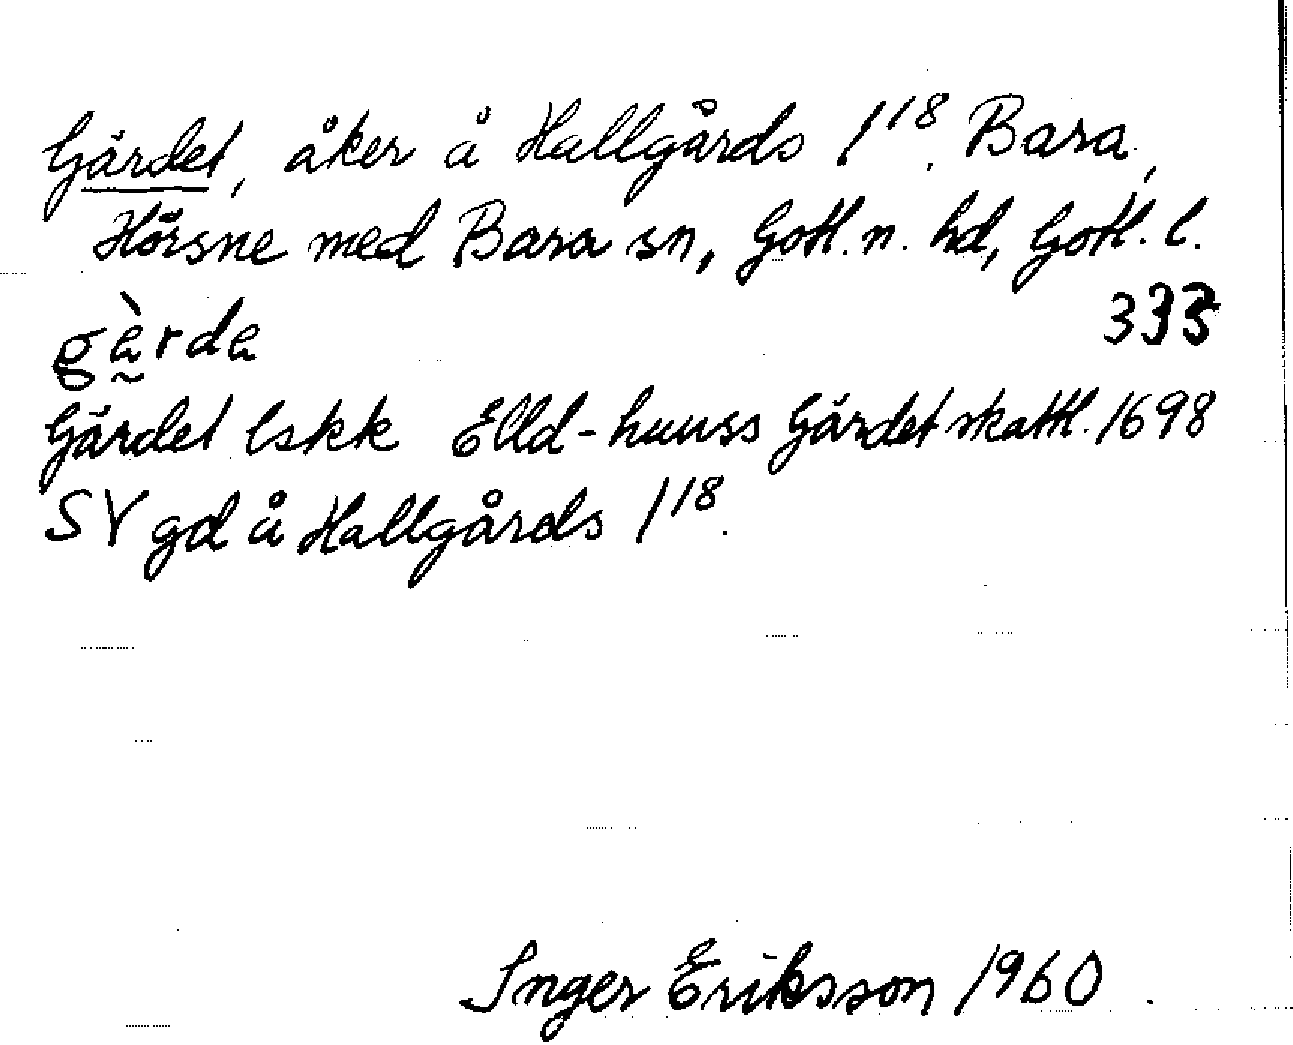 Gärdet, åker å Hallgårds 1¹⁸. Bara,
Hörsne med Bara sn, Gotl. n. hd, Gotl. l.
gàrda̰ 333
Gärdet lskk Elld-huuss Gärdet skattl. 1698
SV gd å Hallgårds 1¹⁸.
Inger Eriksson 1960.